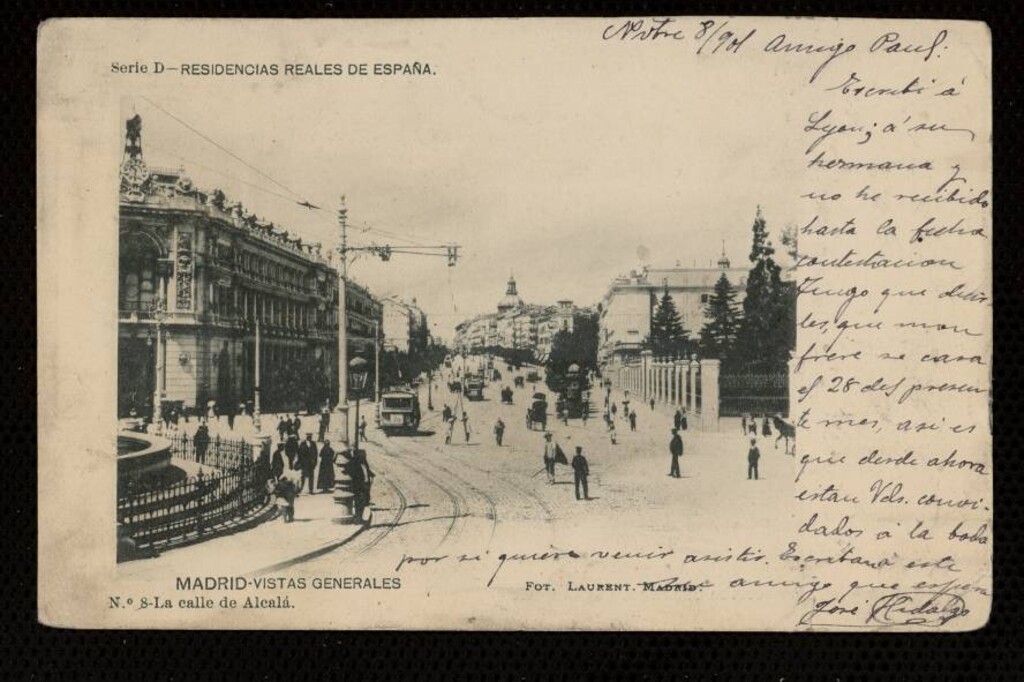 Serie D—RESIDENCIAS REALES DE ESPAÑA.
Nvbre 8/901 Amigo Paul:
Escribi á
Lyon; á su
hermana y
no he recibido
hasta la fecha
contestacion
Tengo que decir
les, que mon
frere se casa
el 28 del presen
te mes, asi es
que desde ahora
estan Vds. convi-
dados á la boda
por si quiere venir asistir. Escribana este
amigo que espera
José Hidalgo
MADRID-VISTAS GENERALES
FOT. LAURENT. MADRID.
N.º 8-La calle de Alcalá.